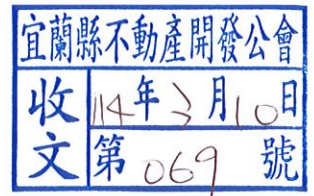 宜蘭縣不動產開發公會
收文
114年3月10日
第069號